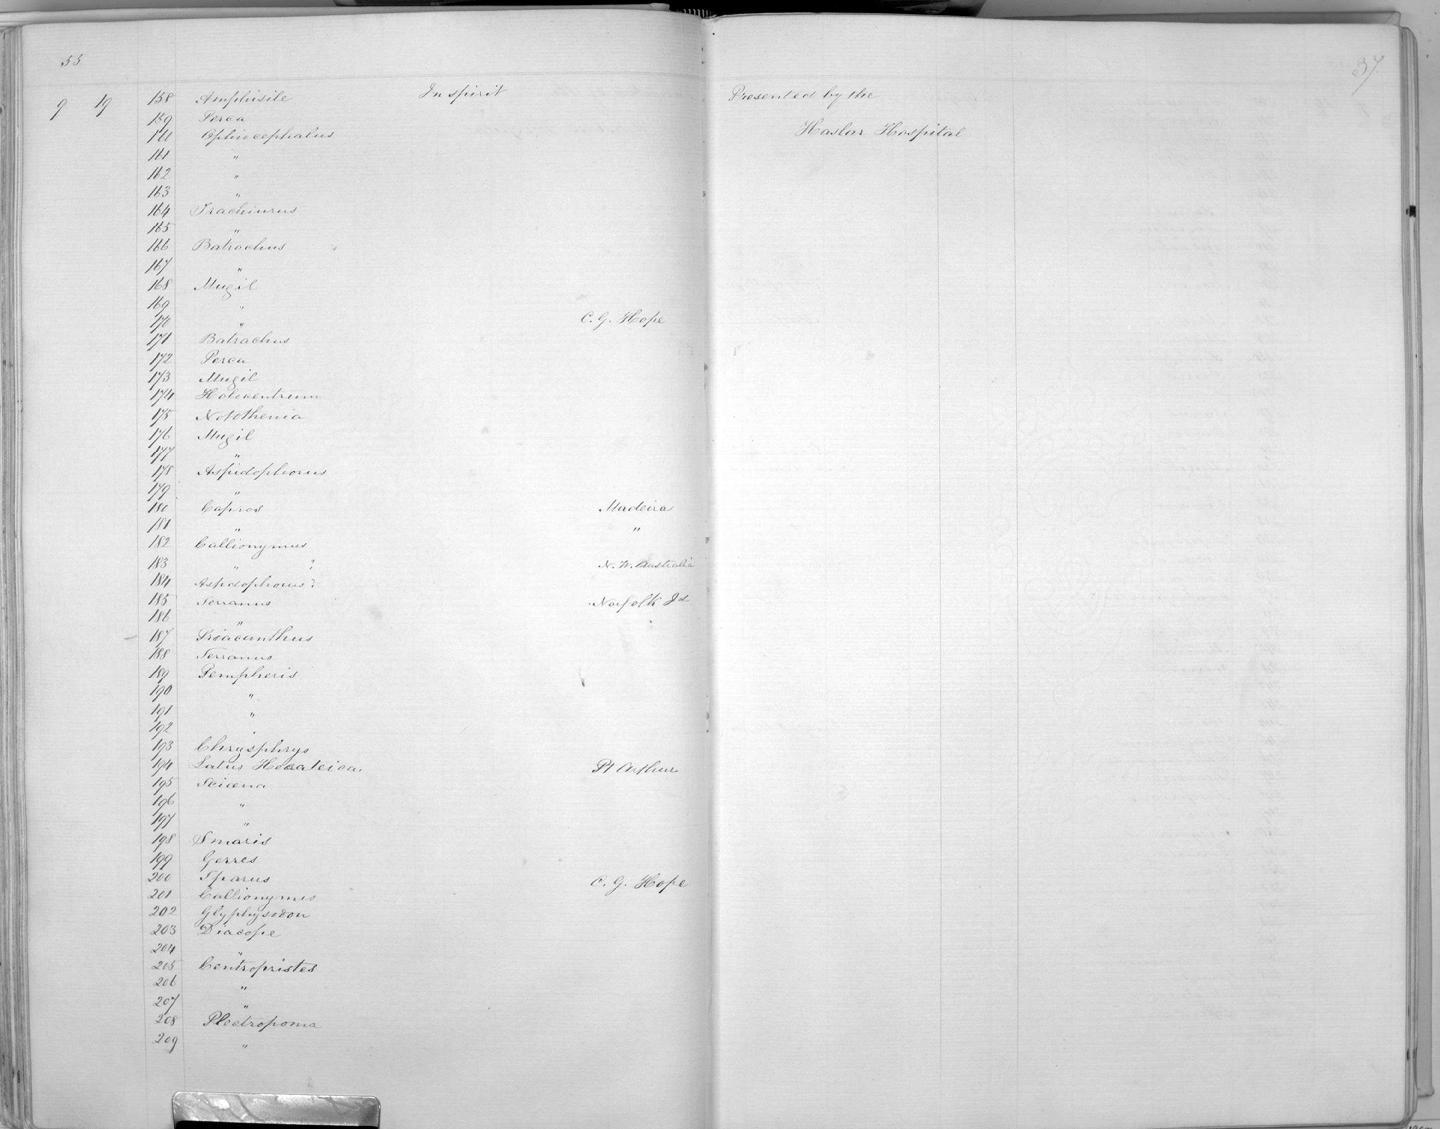 55
37
9 19 158 Amphisile In spirit Presented by the
159 Perca
160 Ophiocephalus Haslar Hospital
161 "
162 "
163 "
164 Trachiurus
165 "
166 Batrachus
167 "
168 Mugil
169 "
170 " C. G. Hope
171 Batrachus
172 Perca
173 Mugil
174 Holocentrum
175 Notothenia
176 Mugil
177 "
178 Aspidophorus
179 "
180 Capros Madeira
181 " "
182 Callionymus
183 " ? N. W. Australia
184 Aspidophorus ?
185 Serranus Norfolk Id
186 "
187 Priacanthus
188 Serranus
189 Pempheris
190 "
191 "
192 "
193 Chrysphrys
194 Latus Pt Arthur
195 Sciæna
196 "
197 "
198 Smaris
199 Gerres
200 Sparus C. G. Hope
201 Callionymus
202 Glyphysodon
203 Diacope
204 "
205 Centropristes
206 "
207 "
208 Plectropoma
209 "